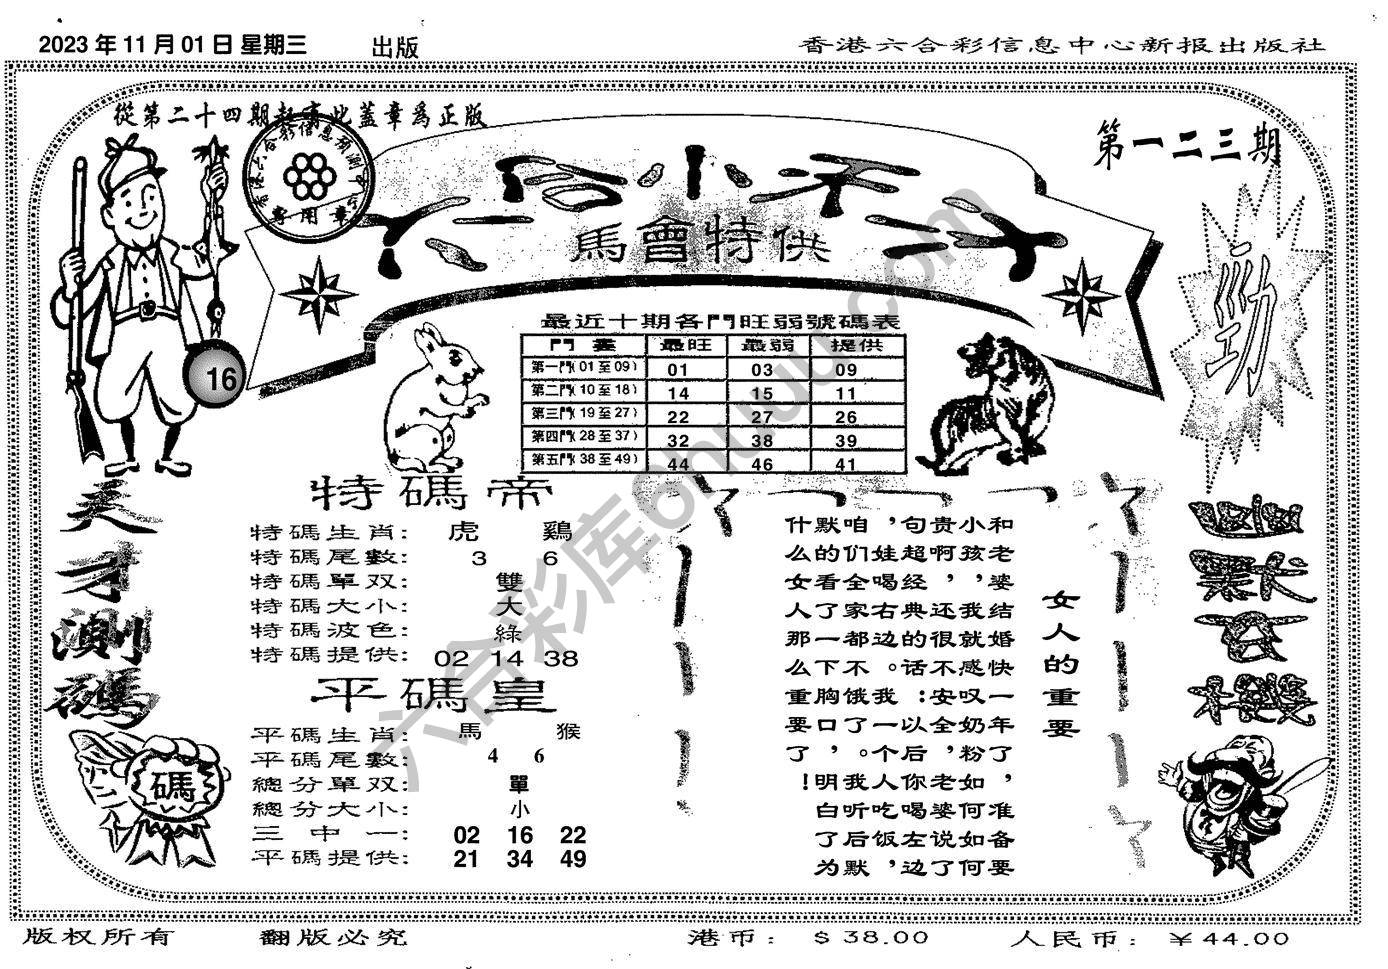 2023年11月01日星期三
出版
香港六合彩信息中心新报出版社
從第二十四期起寄此蓋章爲正版
香港六合彩信息預測中心
專用章
第一二三期
六合小天才
馬會特供
勁
16
最近十期各門旺弱號碼表
門
最旺
最弱
提供
第一門(01至09)
01
03
09
第二門(10至18)
14
15
11
第三門(19至27)
22
27
26
第四門(28至37)
32
38
39
第五門(38至49)
44
46
41
天才測碼
碼
特碼帝
特碼生肖: 虎 鷄
特碼尾數: 3 6
特碼單双: 雙
特碼大小: 大
特碼波色: 綠
特碼提供: 02 14 38
平碼皇
平碼生肖: 馬 猴
平碼尾數: 4 6
總分單双: 單
總分大小: 小
三中一: 02 16 22
平碼提供: 21 34 49
女人的重要
和老婆结婚快一年了，准备要
小孩，我就感叹奶粉如何如何
贵啊，还很不安全，老婆说了
句超经典的话：以后你喝左边
，娃喝右边。我一个人吃饭，
咱们全家都不饿了。我听后默
默的看了一下胸口，明白了为
什么女人那么重要了！
版权所有
翻版必究
港币：
$38.00
人民币：
￥44.00
六合彩库6huu.com